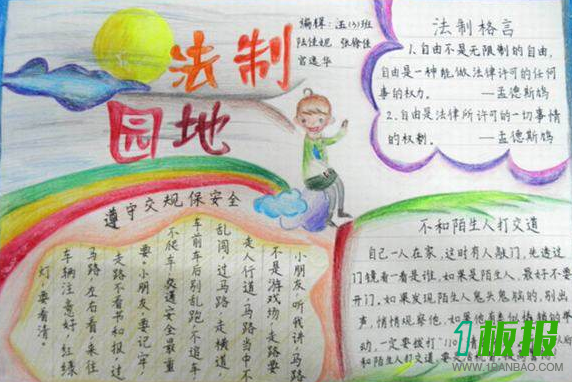 法制
园地
编辑：五(3)班
陆佳妮 张徐佳
宫逸华
法制格言
1.自由不是无限制的自由，
自由是一种能做法律许可的任何
事的权力。 —孟德斯鸠
2.自由是法律所许可的一切事情
的权利。 —孟德斯鸠
遵守交规保安全
小朋友听我讲,马路
不是游戏场,走路要
走人行道,马路当中不
乱闯,过马路,走横道
车前车后别乱跑,不追车
不爬车,交通安全最重
要,小朋友,要记牢,
走路不看书和报,过
马路左右看,来往
车辆注意好,红绿
灯,要看清。
不和陌生人打交道
自己一人在家,这时有人敲门,先透过
门镜看一看是谁,如果是陌生人,最好不要
开门,如果发现陌生人鬼头鬼脑的,别出
声,悄悄观察他,如果他有
动,一定要拨打"110"
和陌生人打交道,要
1板报
WWW.1BANBAO.COM